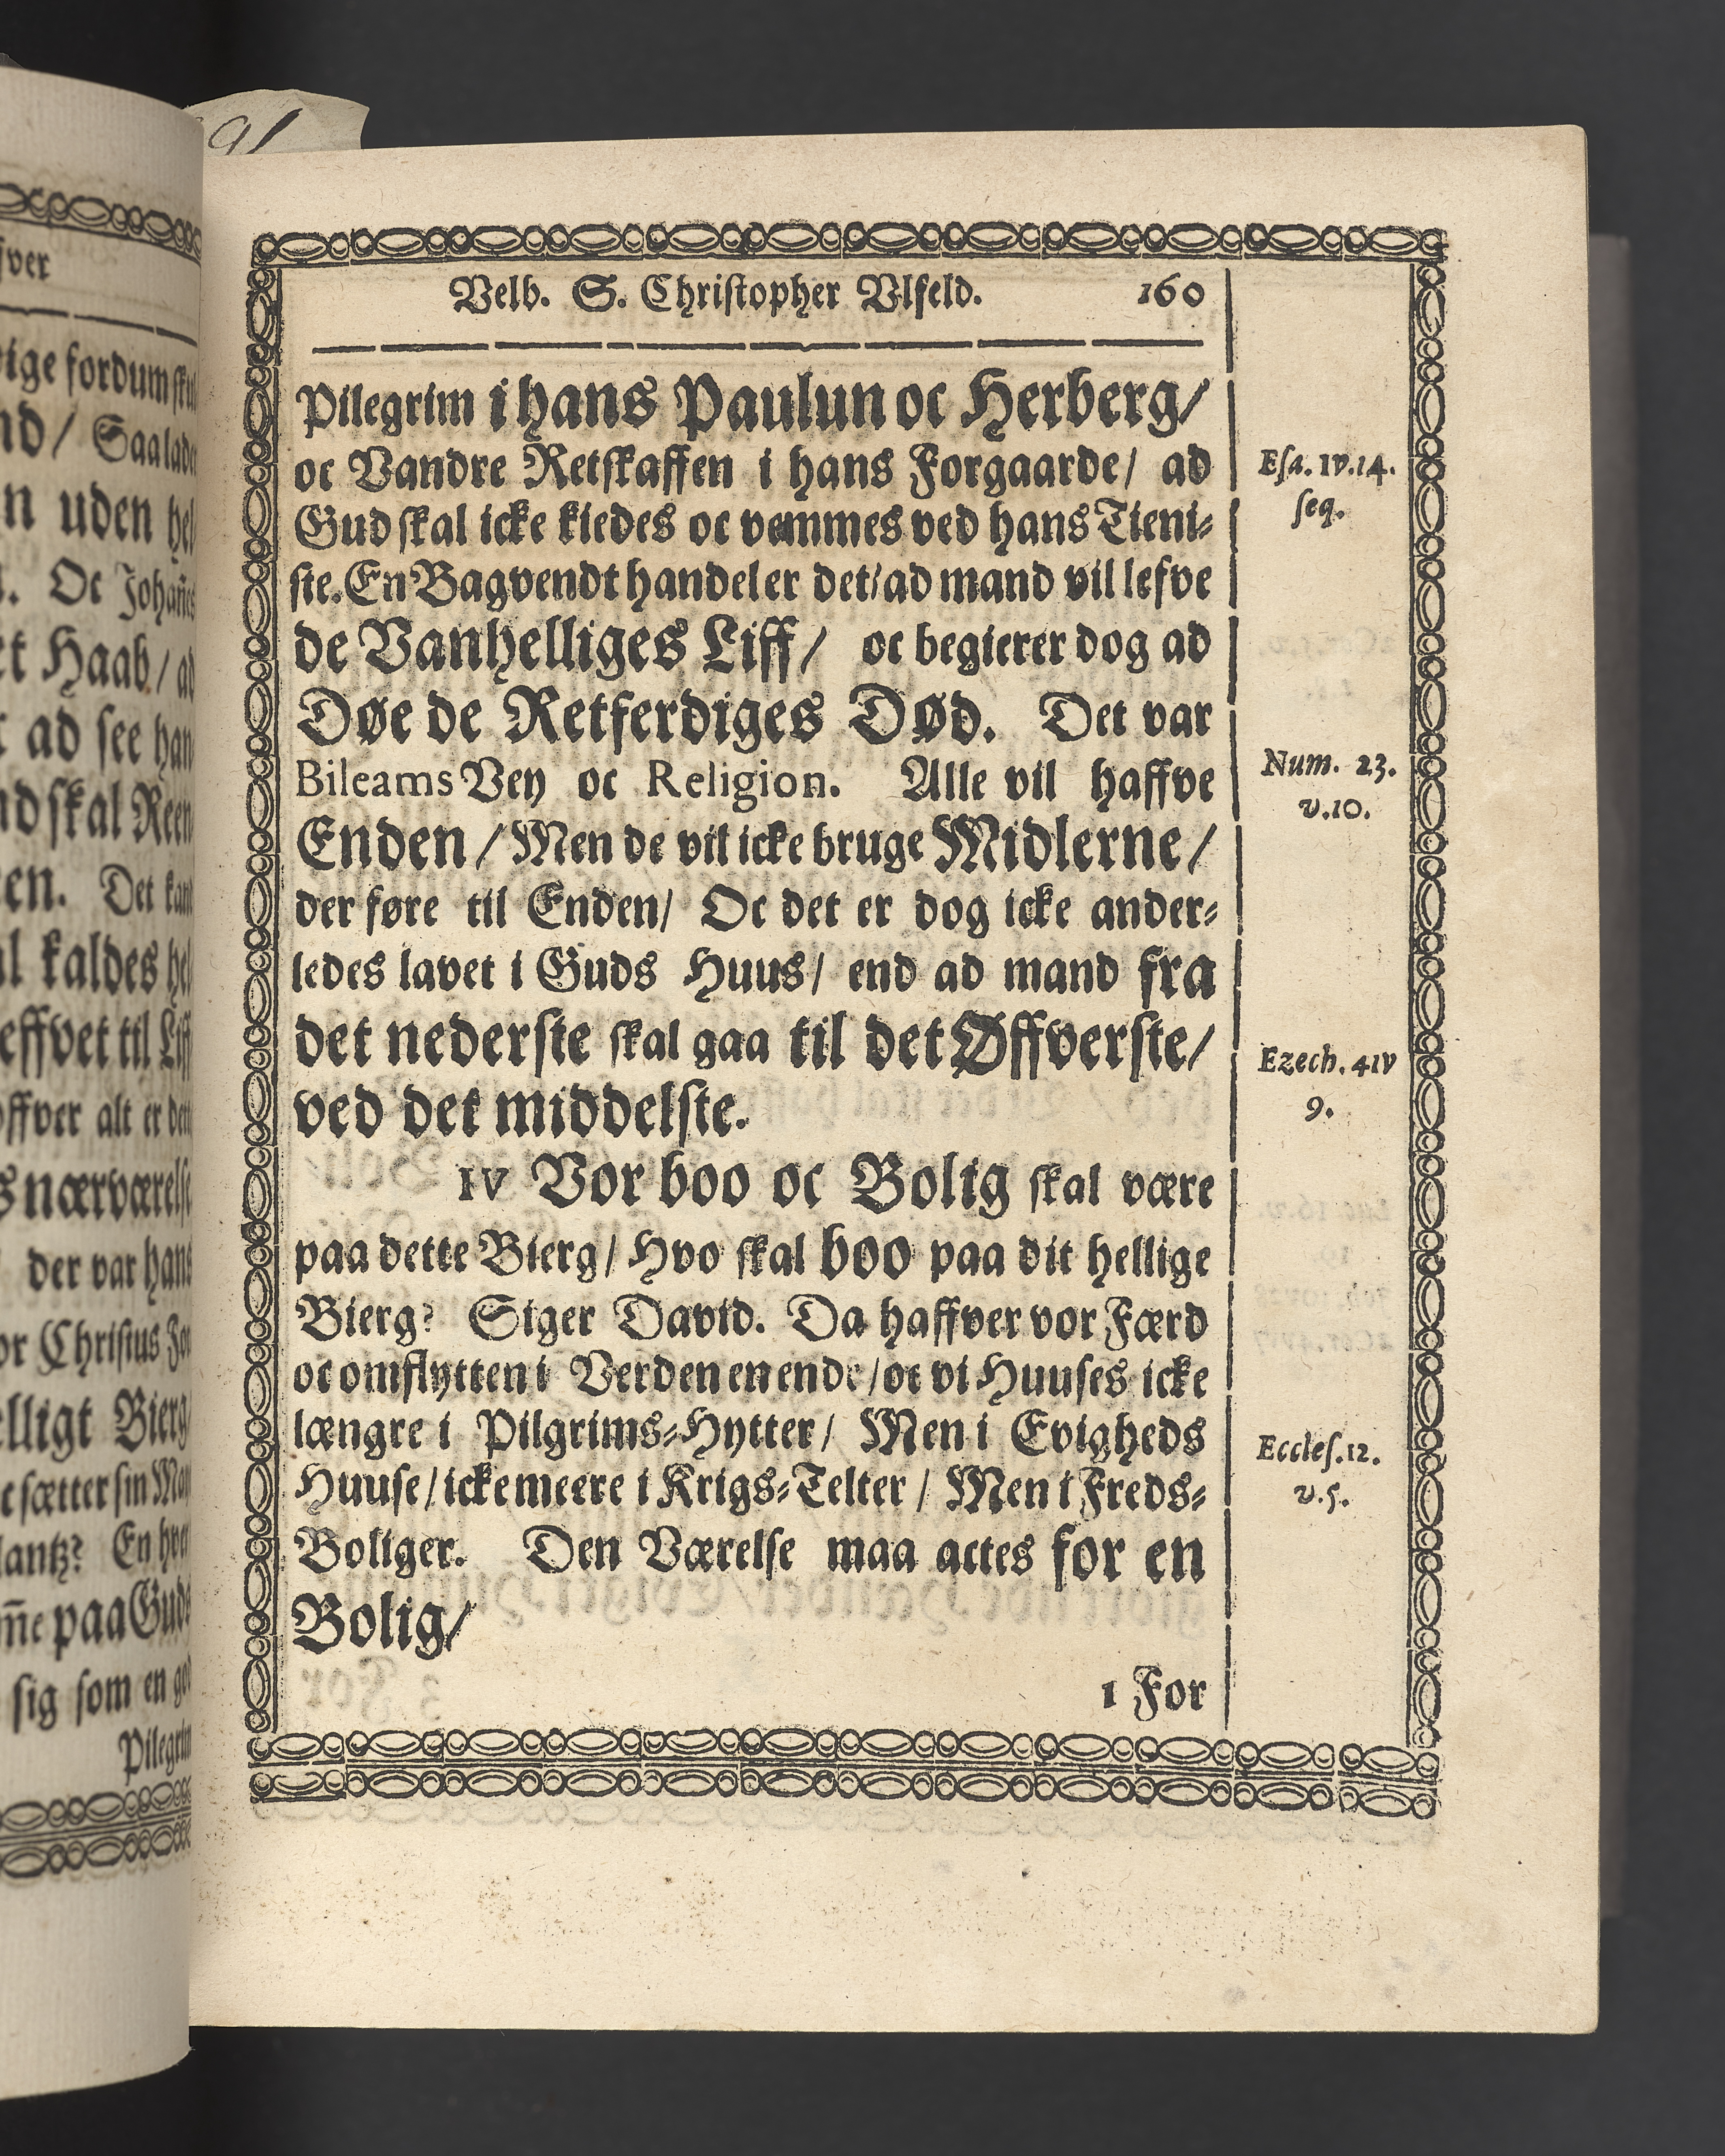 91
Velb. S. Christopher Vlfeld. 160
Pilegrim i hans Paulun oc Herberg/
oc Vandre Retskaffen i hans Forgaarde/ ad
Gud skal icke kiedes oc vemmes ved hans Tieni-
ste. En Bagvendt handel er det/ ad mand vil lefve
de Vanhelliges Liff/ oc begierer dog ad
Døe de Retferdiges Død. Det var
Bileams Vey oc Religion. Alle vil haffve
Enden / Men de vil icke bruge Midlerne/
der føre til Enden/ Oc det er dog icke ander-
ledes lavet i Guds Huus/ end ad mand fra
det nederste skal gaa til det Øffverste/
ved det middelste.
IV Vor boo oc Bolig skal være
paa dette Bierg/ Hvo skal boo paa dit hellige
Bierg? Siger David. Da haffver vor Færd
oc omflytten i Verden en ende/oc vi Huuses icke
længre i Pilgrims-Hytter/ Men i Evigheds
Huuse/ icke meere i Krigs-Telter / Men i Freds-
Boliger. Den Værelse maa actes for en
Bolig/
1 For
Esa. 1v.14.
seq.
Num. 23.
v.10.
Ezech. 41v
9.
Eccles.12.
v.5.
fver
fordum
nd/ Saa
n uden
. Oc
et Haab/ ad
ad see
skal Reen
en. Det
kaldes
til
ffver alt er
nærværelse
der var hans
or Christus
Bierg
sætter sin
En hver
paa Guds
sig som en
Pilegrim